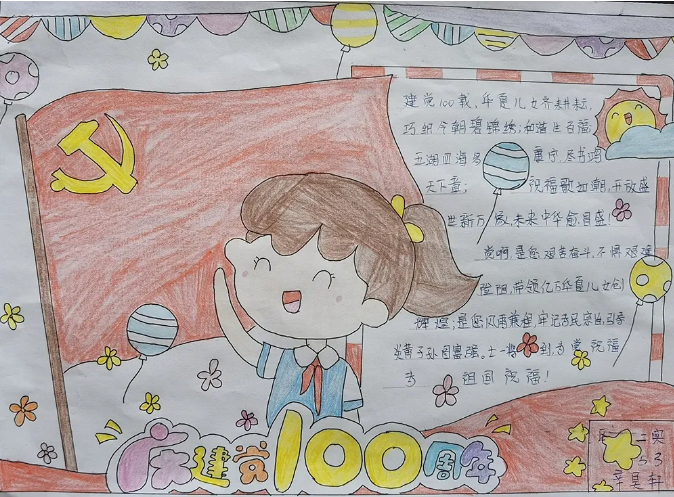 建党100载,华夏儿女齐耕耘,
巧织今朝碧锦绣;和谐生百福,
五湖四海 康宁,尽书鸿
天下童; 祝福歌如潮,开放盛
世新万 ,未来中华愈昌盛!
党啊,是您,艰苦奋斗,不惧艰难
险阻,带领亿万华夏儿女创
辉煌;是您风雨兼程,牢记为民宗旨,引領
炎黄子孙图富强。七一 到,为党祝福
为 祖国祝福!
庆建党100周年
二奥
辛昊轩